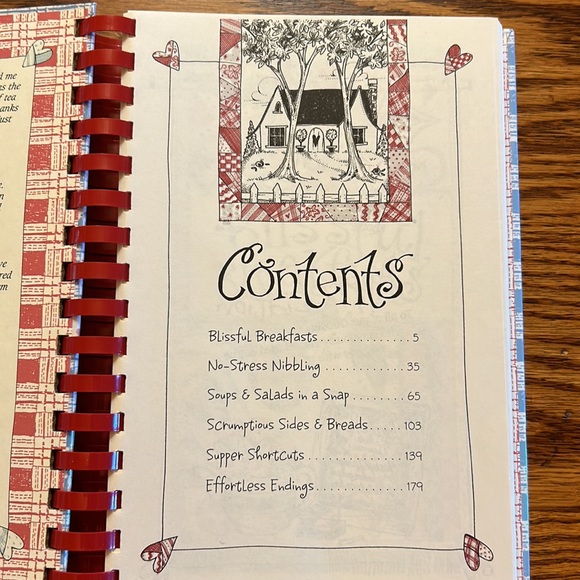 d me
as the
f tea
anks
Just
e.
n
d
ve
red
rm
Contents
Blissful Breakfasts . . . . . . . . . . . . . . 5
No-Stress Nibbling . . . . . . . . . . . . . 35
Soups & Salads in a Snap . . . . . . . . . 65
Scrumptious Sides & Breads . . . . . 103
Supper Shortcuts . . . . . . . . . . . . . . . 139
Effortless Endings . . . . . . . . . . . . . . 179